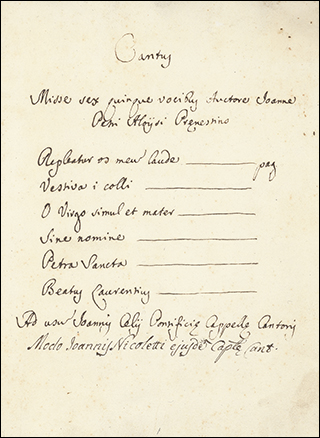 Cantus
Misse sex quinque vocibus Auctore Joanne
Petri Aloysi Prenestino
Repleatur os meu laude pag
Vestiva i colli
O Virgo simul et mater
Sine nomine
Petra Sancta
Beatus Laurentius
Ad usu Joannis Celij Pontificie Cappelle Cantoris
Modo Joannis Nicoletti ejusde Caple Cant.